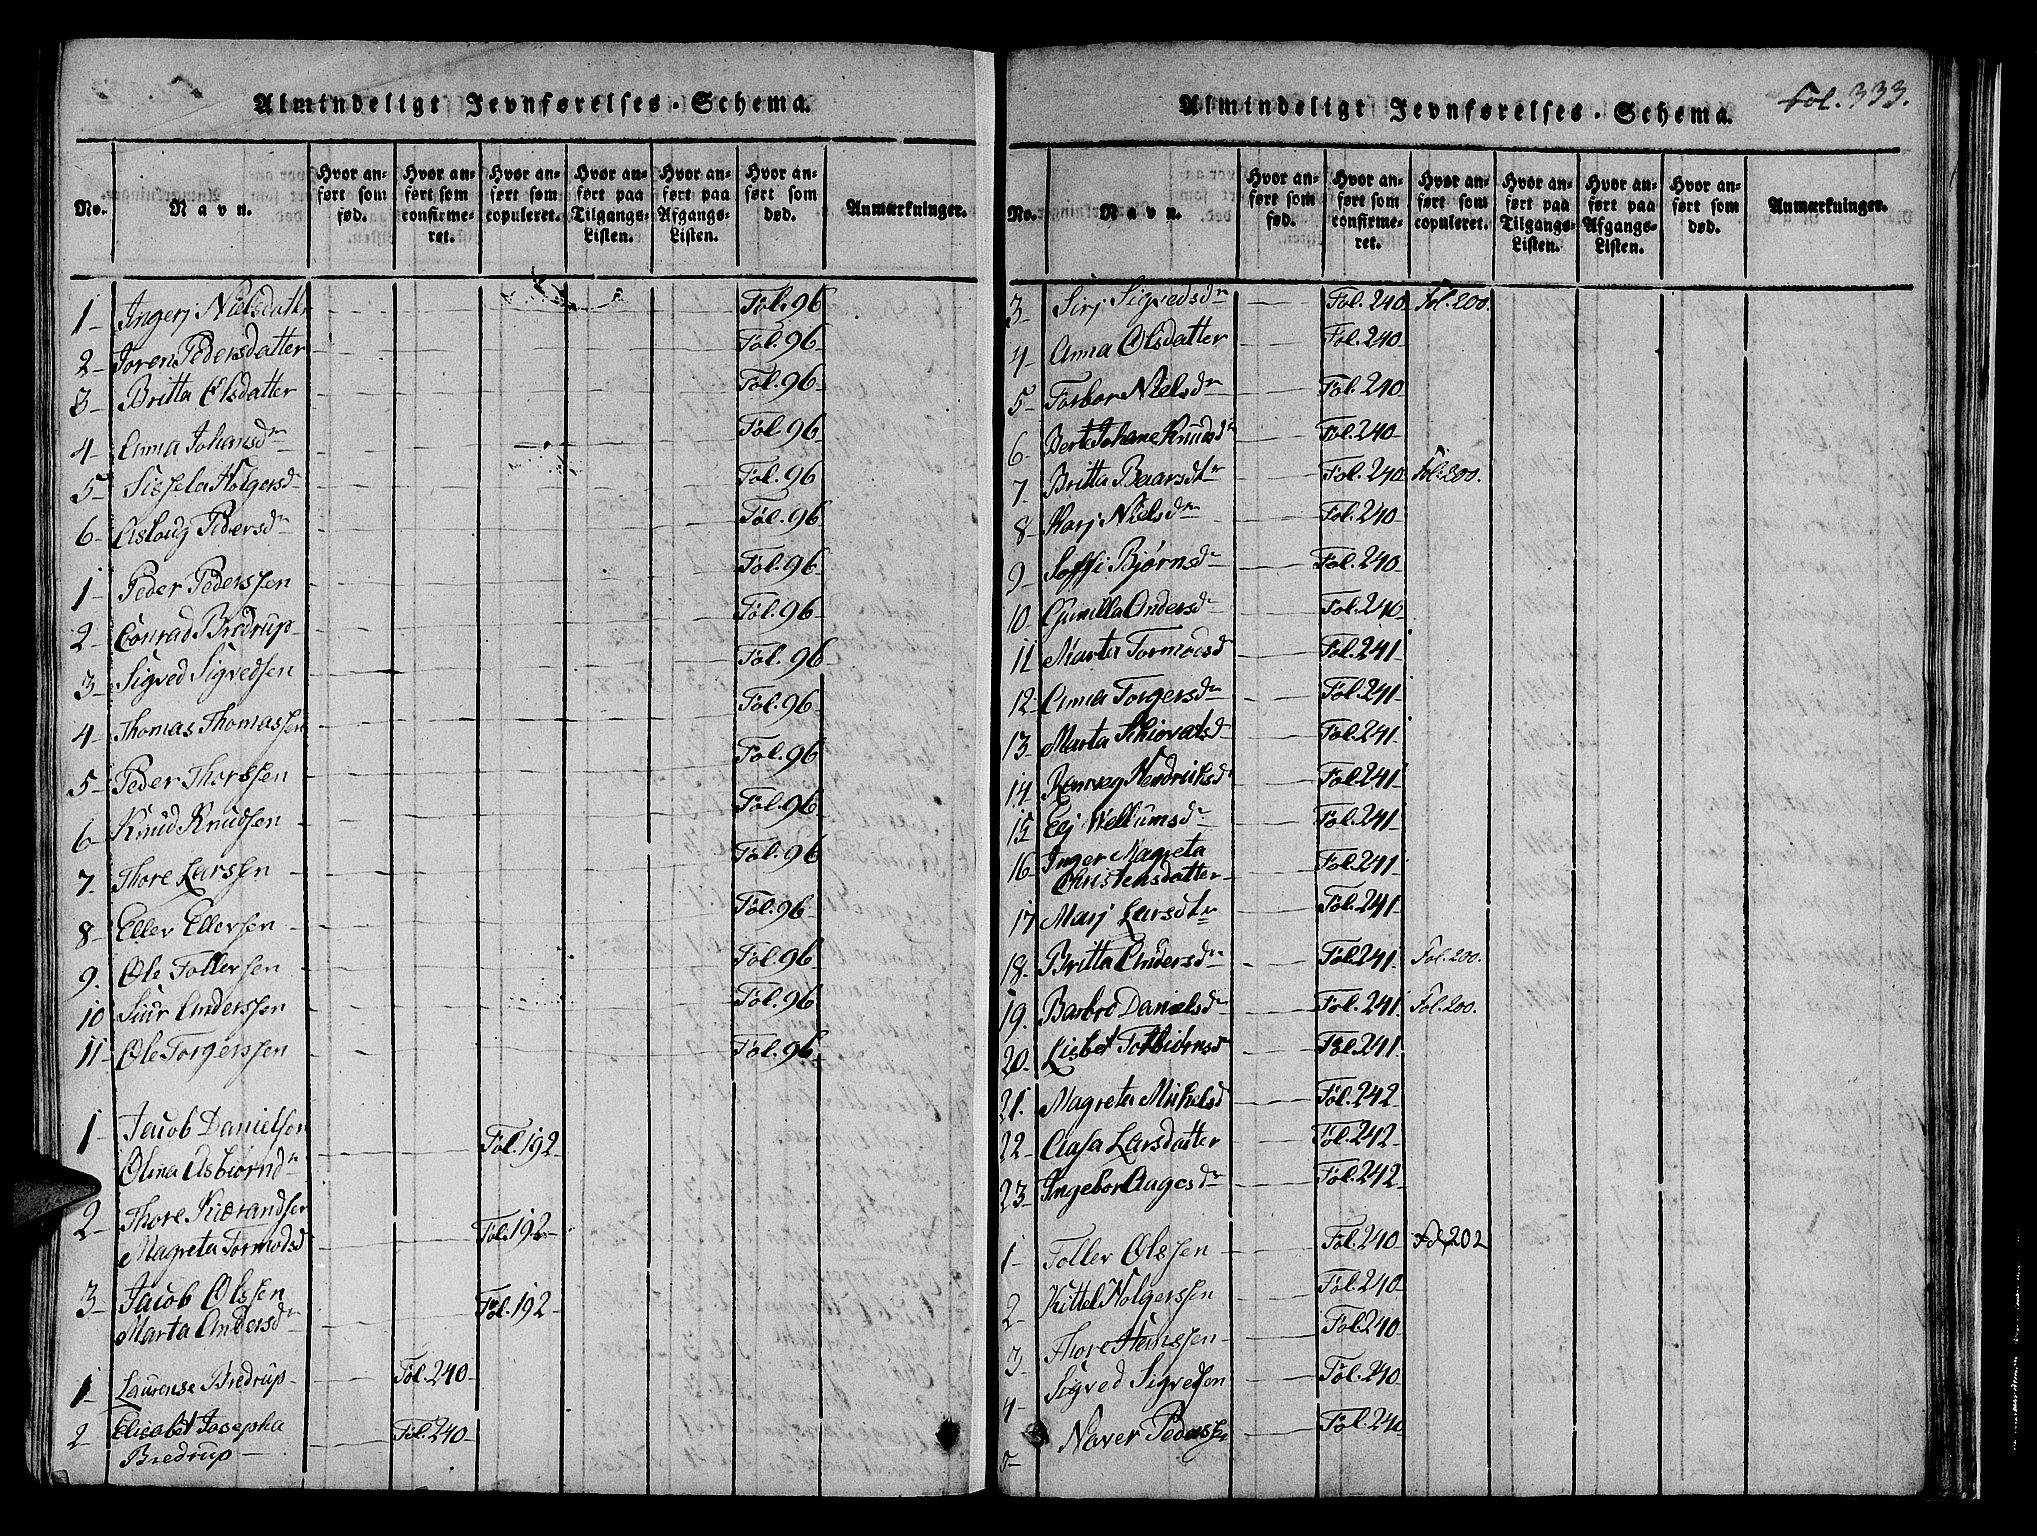 Almindeligt Jevnførelses-Schema.
No.
Navn.
Hvor anført som fød.
Hvor anført som confirmeret.
Hvor anført som copuleret.
Hvor anført paa Tilgangs-Listen.
Hvor anført paa Afgangs-Listen.
Hvor anført som død.
Anmærkninger.
1 - Ingerj Nielsdatter Fol. 96
2 - Joren Pedersdatter Fol. 96
3 - Britta Olsdatter Fol. 96
4 - Anna Johansdr Fol. 96
5 - Sissela Holgersd Fol. 96
6 - Aslaug Pedersdr Fol. 96
1 - Peder Pederssen Fol. 96
2 - Conrad Bredrup Fol. 96
3 - Sigved Sigvedsen Fol. 96
4 - Thomas Thomassen Fol. 96
5 - Peder Thorssen Fol. 96
6 - Knud Knudsen Fol. 96
7 - Thore Larssen Fol. 96
8 - Eller Ellersen Fol. 96
9 - Ole Tollersen Fol. 96
10 Siur Anderssen Fol. 96
11 - Ole Torgerssen Fol. 96
1 - Jacob Danielsen Fol. 192
Olina Asbiørndr
2 - Thore Kiærandsen Fol. 192
Magreta Tormodsd
3 - Jacob Olssen Fol. 192
Marta Andersdr
1 - Laurense Bredrup Fol. 240
2 - Elisabet Josepha Fol. 240
Bredrup
Fol. 333.
Almindeligt Jevnførelses-Schema.
No.
Navn.
Hvor anført som fød.
Hvor anført som confirmeret.
Hvor anført som copuleret.
Hvor anført paa Tilgangs-Listen.
Hvor anført paa Afgangs-Listen.
Hvor anført som død.
Anmærkninger.
3 - Sirj Sigvedsdr Fol. 240 Fol. 200.
4 - Anna Olsdatter Fol. 240
5 - Torbor Nielsdr Fol. 240
6 - Berte Johane Knudsdr Fol. 240
7 - Britta Baarsdtr Fol. 240 Fol. 200.
8 - Karj Nielsdr Fol. 240
9 - Soffi Bjørnsdr Fol. 240
10 - Gunilla Andersdr Fol. 240
11 - Marta Tormodsd Fol. 241
12 - Anna Torgersdr Fol. 241
13 - Marta Schiovatsdr Fol. 241
14 - Ranveg Hendriksdr Fol. 241
15 - Elj Wellumsdr Fol. 241
16 - Inger Magreta Fol. 241
Christensdatter
17 Marj Larsdtr Fol. 241
18 - Britta Andersdr Fol. 241 Fol. 200.
19 - Barbro Danielsdr Fol. 241 Fol. 200.
20 - Lisbet Torbiørnsd Fol. 241
21 - Magreta Mikelsd Fol. 242
22 - Aasa Larsdatter Fol. 242
23 - Ingebor Aagesdr Fol. 242
1 - Toller Olssen Fol. 240 Fol. 202
2 - Kittel Holgerssen Fol. 240
3 - Thore Hanssen Fol. 240
4 - Sigved Sigvedsen Fol. 240
5 - Naver Pederssen Fol. 240